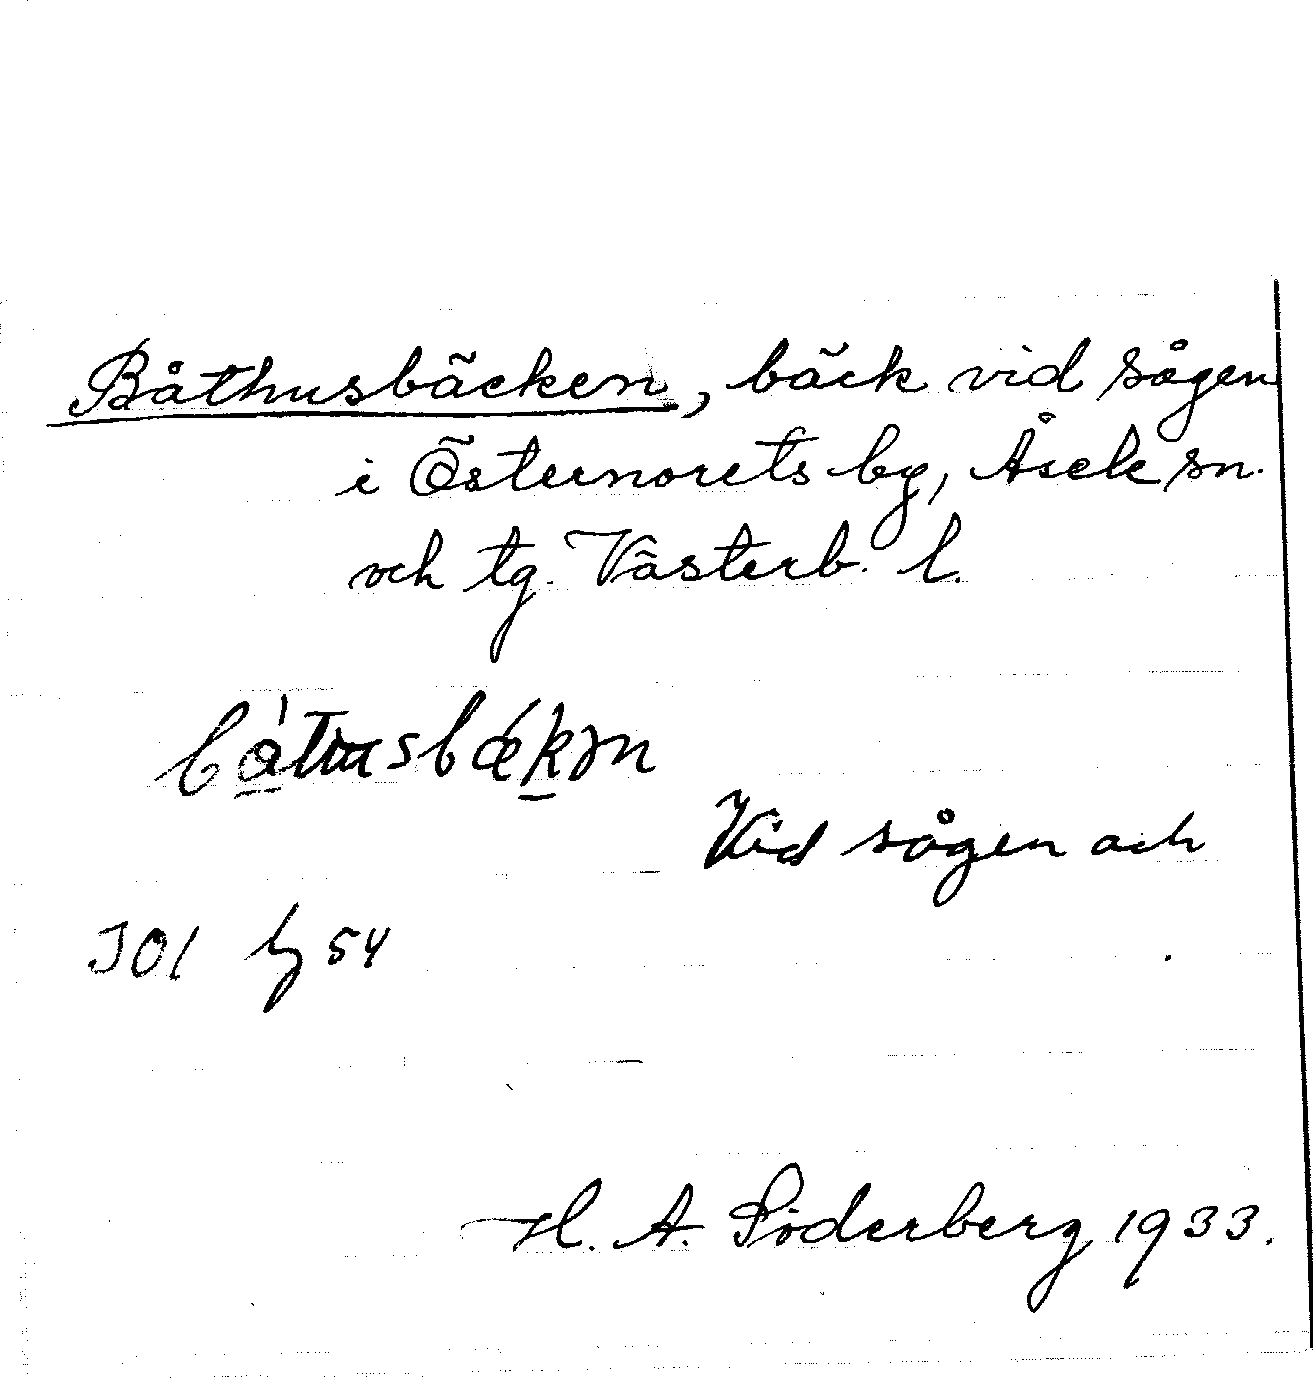 Båthusbäcken, bäck vid sågen
i Östernorets by, Åsele sn.
och tg. Västerb. l.
Vid sågen och
JOl bg 54
H. A. Söderberg 1933.